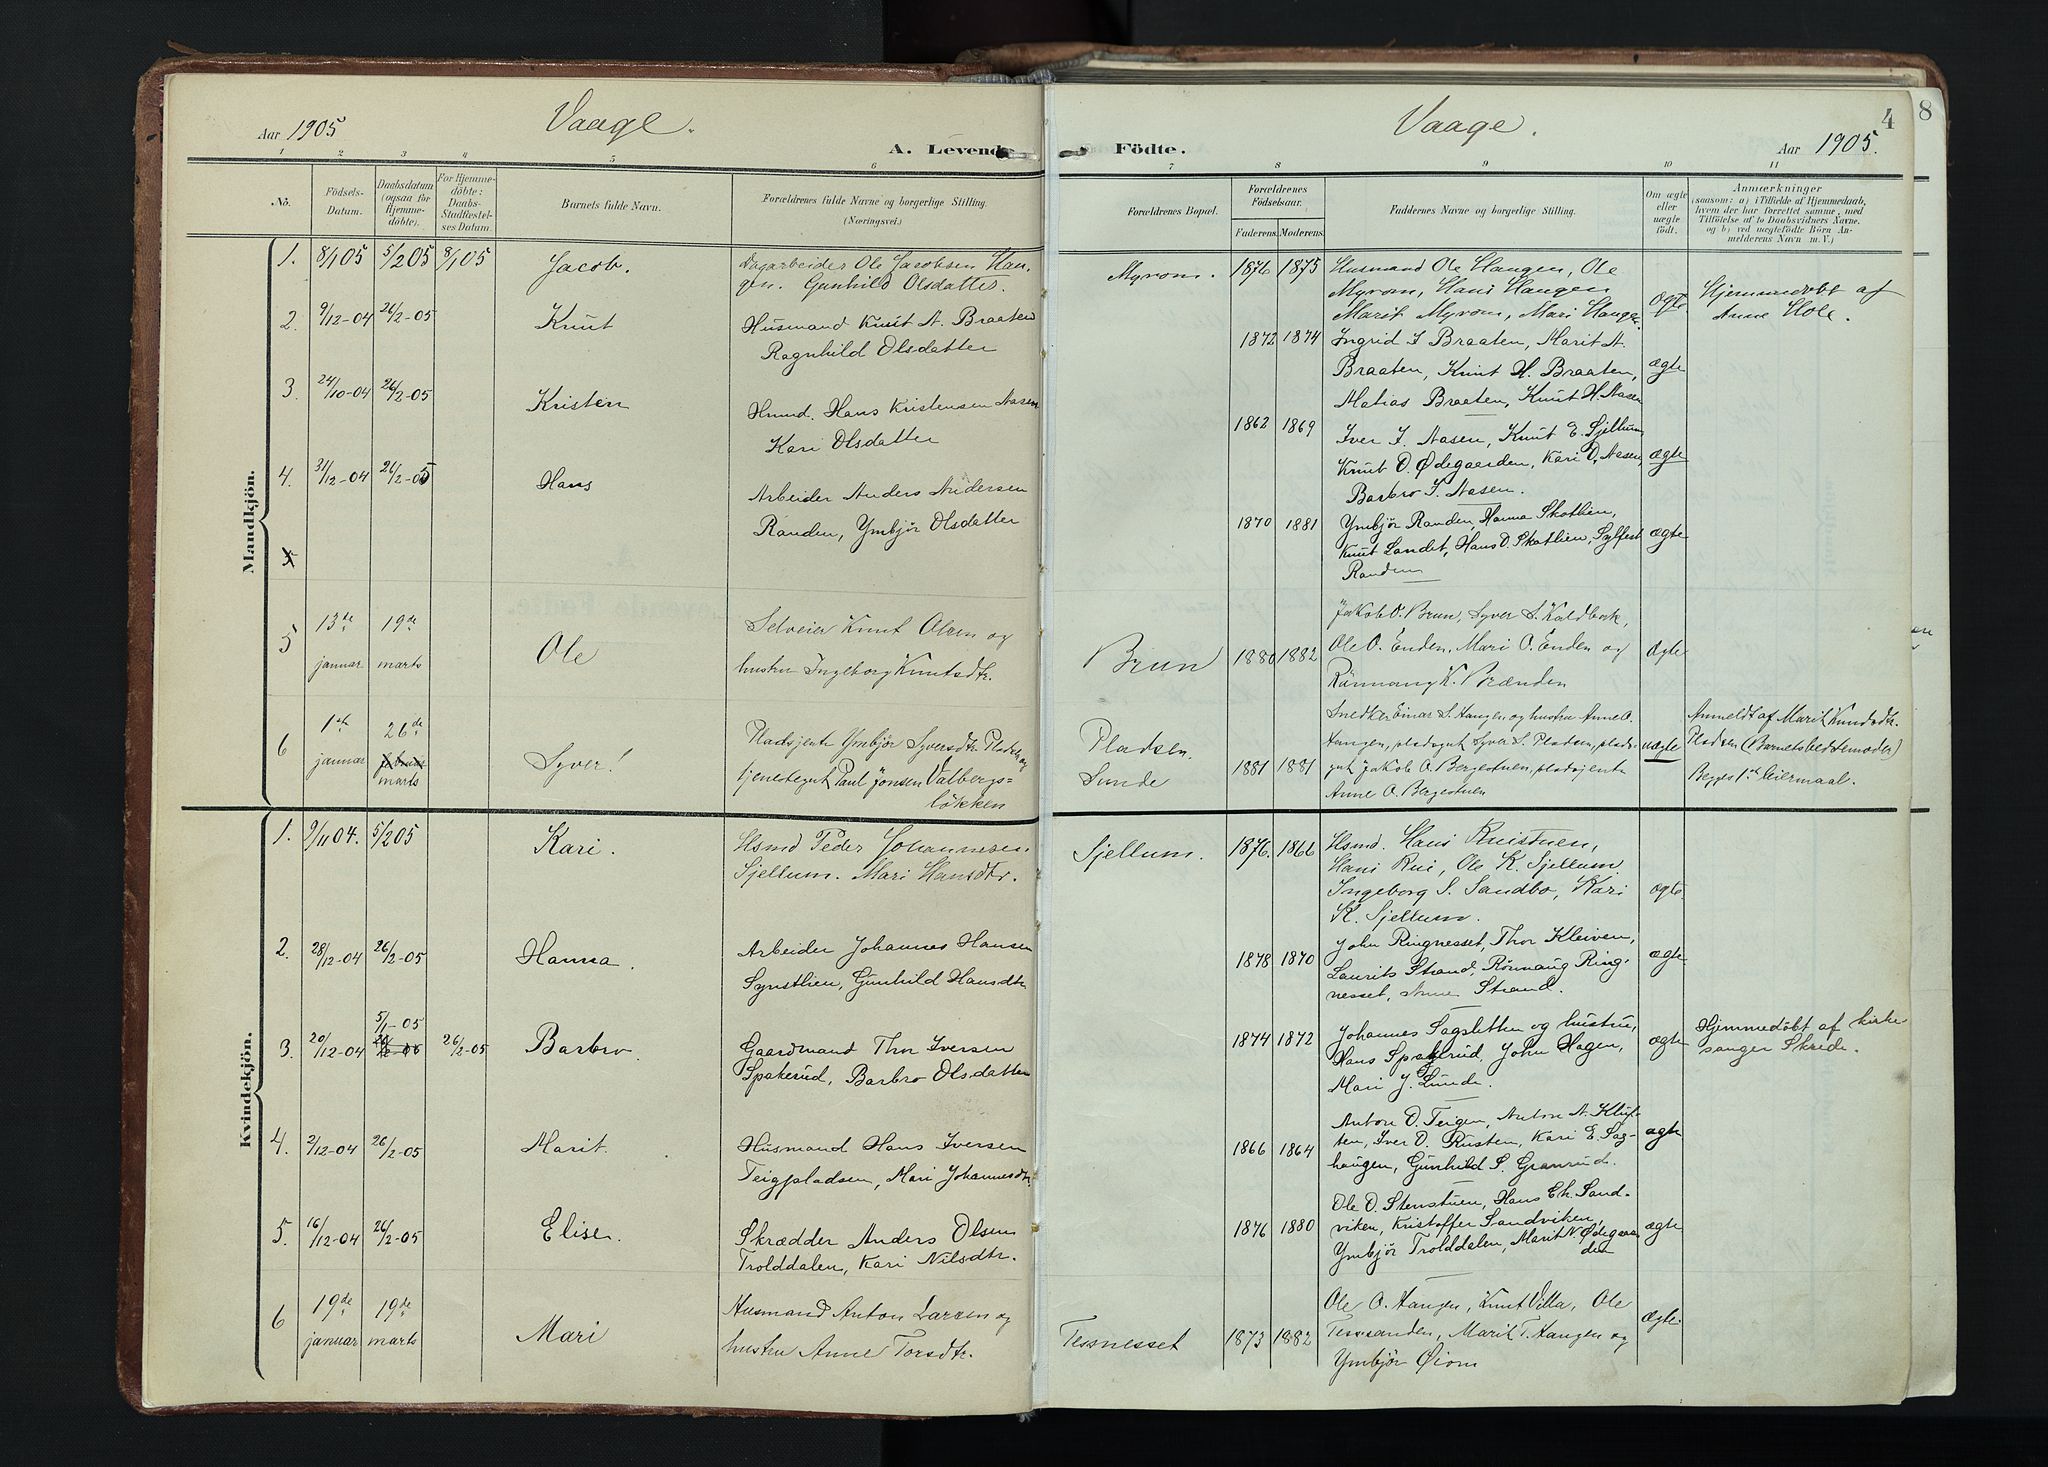 Aar 1905
Vaage.
A. Levende
Födte.
Vaage.
Aar 1905.
4
8
1 2 3 4 5 6 7 8 9 10 11
No.
Födsels-
Datum.
Daabsdatum
(ogsaa for
Hjemme-
döbte).
For Hjemme-
döbte:
Daabs-
Stadfæstel-
ses Datum.
Barnets fulde Navn.
Forældrenes fulde Navne og borgerlige Stilling.
(Næringsvei.)
Forældrenes Bopæl.
Forældrenes
Födselsaar.
Faderens. Moderens.
Faddernes Navne og borgerlige Stilling.
Om ægte
eller
uægte
födt.
Anmærkninger
(saasom: a) i Tilfælde af Hjemmedaab,
hvem der har forrettet samme, med
Tilföielse af to Daabsvidners Navne.
og b) ved uægtefödte Börn An-
melderens Navn m. V.)
Mandkjön.
1. 8/1 05 5/2 05 8/1 05 Jacob.
Dagarbeider Ole Jacobsen Hau-
gen. Gunhild Olsdatter.
Myrom. 1876 1875
Husmand Ole Haugen, Ole
Myrom, Hans Haugen
Marit Myrom, Mari Haugen.
ægte
Hjemmedöbt af
Anne Hole.
2. 9/12-04 26/2-05 Knut
Husmand Knut A. Braaten
Ragnhild Olsdatter
1872 1874
Ingrid I Braaten, Marit A.
Braaten, Knut H. Braaten,
Matias Braaten, Knut H. Aasen
ægte
3. 24/10-04 26/2-05 Kristen
Hmd. Hans Kristensen Aasen
Kari Olsdatter
1862 1869
Iver I. Aasen, Knut E. Sjellum,
Knut O. Ødegaarden, Kari O. Aasen,
Barbro I. Aasen.
ægte
4. 31/12-04 26/2-05 Hans
Arbeider Anders Andersen
Randen, Ymbjör Olsdatter
1870 1881
Ymbjör Randen, Hanna Skotlien,
Knut Landet, Hans O. Skotlien, Sylfest
Randen
ægte
5 13de januar 19de marts Ole
Selveier Knut Olsen og
hustru Ingeborg Knutsdtr.
Brun 1880 1882
Jakob O. Brun, Syver S. Koldbork,
Ole O. Enden, Mari O. Enden og
Rönnaug K. Brænden
Ægte
6 1ste januar 26de februar marts Syver!
Pladsjente Ymbjör Syversdtr. Pladsen og
tjenestegut Paul Jonsen Valbergs-
lökken
Pladsen
Sunde
1881 1881
Snedker Einar S. Haugen og hustru Anne O.
Haugen, pladsgut Syver S. Pladsen, plads-
gut Jakob O. Bergestuen, pladsjente
Anne O. Bergestuen
uægte
Anmeldt af Marit Knudsdtr.
Pladsen (Barnets bedstemoder)
Begges 1ste leiermaal.
Kvindekjön.
1. 9/11 04. 5/2 05 Kari.
Hsmd Peder Johannesen
Sjellum. Mari Hansdtr.
Sjellum. 1876. 1866
Hsmd. Hans Ruistuen,
Hans Rui, Ole K. Sjellum.
Ingeborg S. Sandbo, Kari
K. Sjellum.
ægte.
2. 28/12-04 26/2-05 Hanna.
Arbeider Johannes Hansen
Synstlien, Gunhild Hansdtr
1878 1870
John Ringnesset, Thor Kleiven,
Laurits Strand, Rönnaug Ring-
nesset, Anne Strand.
ægte
3. 20/12-04 5/1-05 26/2-05 Barbro.
Gaardmand Thor Iversen
Spakerud, Barbro Olsdatter
1874 1872
Johannes Sagsletten og hustru,
Hans Spakerud, John Hagen,
Mari J. Lunde.
ægte
Hjemmedöbt af kirke
sanger Skrede.
4. 2/12-04 26/2-05 Marit.
Husmand Hans Iversen
Teigpladsen, Mari Johannesdtr.
1866 1864
Anton O. Teigen, Anton A. Kluf-
ten, Iver O. Rusten, Kari E. Sag-
haugen, Gunhild S. Granrud.
ægte
5. 16/12-04 26/2-05 Elise.
Skrædder Anders Olsen
Trolddalen, Kari Nilsdtr.
1876 1880
Ole O. Stenstuen, Hans Eh. Sand-
viken, Kristoffer Sandviken,
Ymbjör Trolddalen, Marit N. Ødegaar-
den
ægte
6 19de januar 19de marts Mari
Husmand Anton Larsen og
hustru Anne Torsdtr.
Tessnesset 1873 1882
Ole O. Haugen, Knut Villa, Ole
Tessanden, Marit T. Haugen og
Ymbjör Øiom
Ægte.